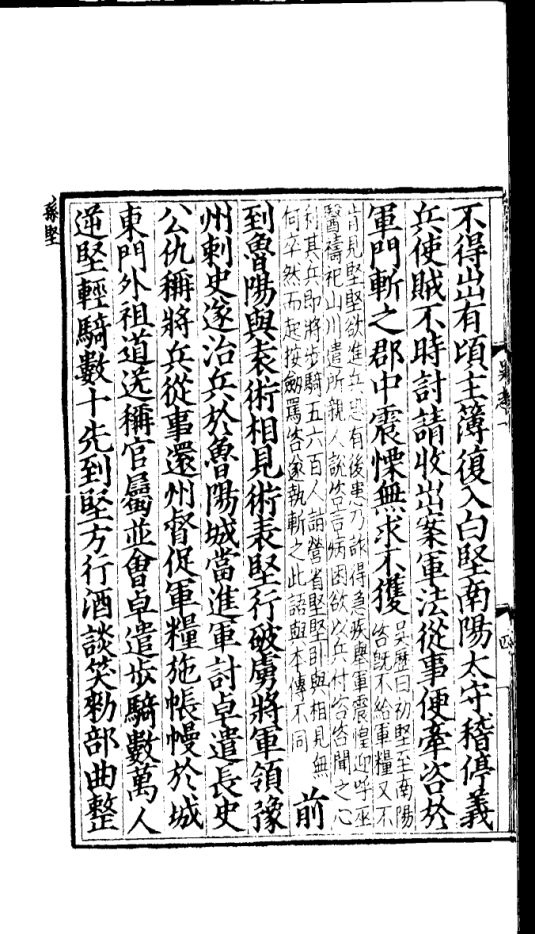 吳志一
四
不得出有頃主簿復入白堅南陽太守稽停義
兵使賊不時討請收出案軍法從事便牽咨於
軍門斬之郡中震慄無求不獲
吳歷曰初堅至南陽
咨既不給軍糧又不
肯見堅堅欲進兵恐有後患乃詐得急疾舉軍震惶迎呼巫
醫禱祀山川遣所親人說咨言病困欲以兵付咨咨聞之心
利其兵即將步騎五六百人詣營省堅堅卧與相見無
何卒然而起按劒罵咨遂執斬之此語與本傳不同
前
到魯陽與袁術相見術表堅行破虜將軍領豫
州刺史遂治兵於魯陽城當進軍討卓遣長史
公仇稱將兵從事還州督促軍糧施帳幔於城
東門外祖道送稱官屬並會卓遣步騎數萬人
逆堅輕騎數十先到堅方行酒談笑勑部曲整
孫堅